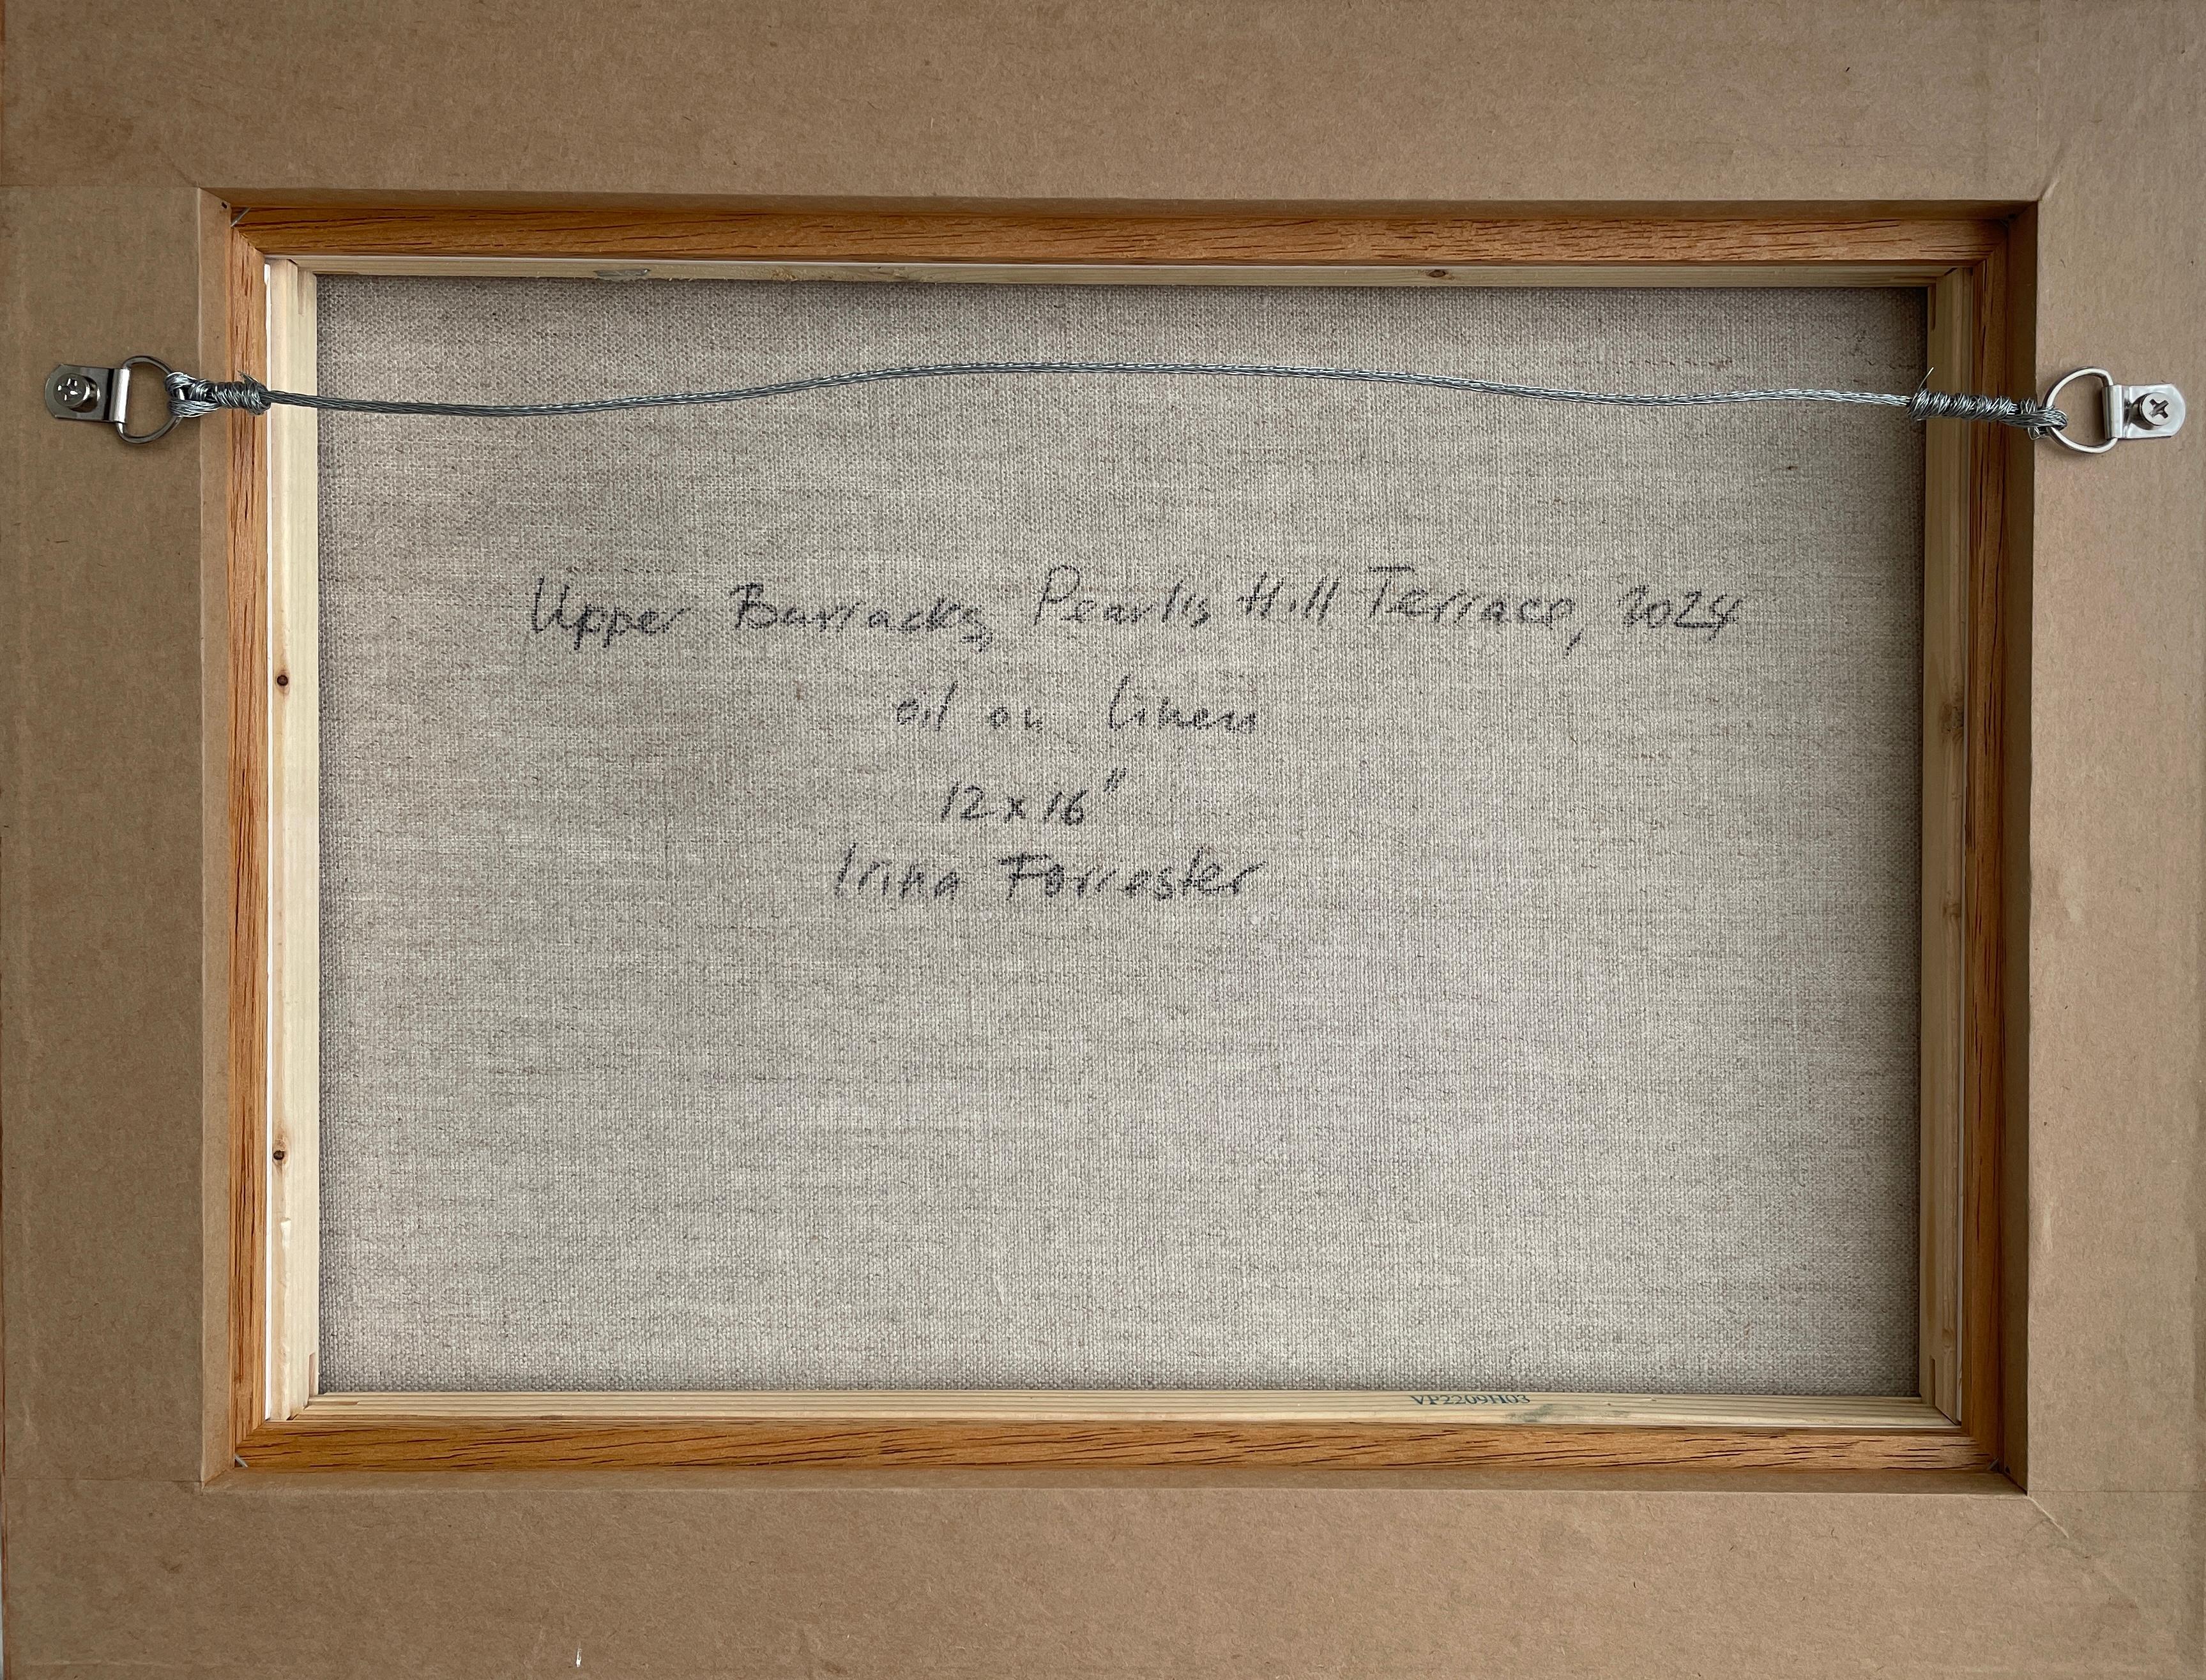 Upper Barracks, Pearl's Hill Terrace, 2024
oil on linen
12x16"
Irina Forrester
VP2209H03